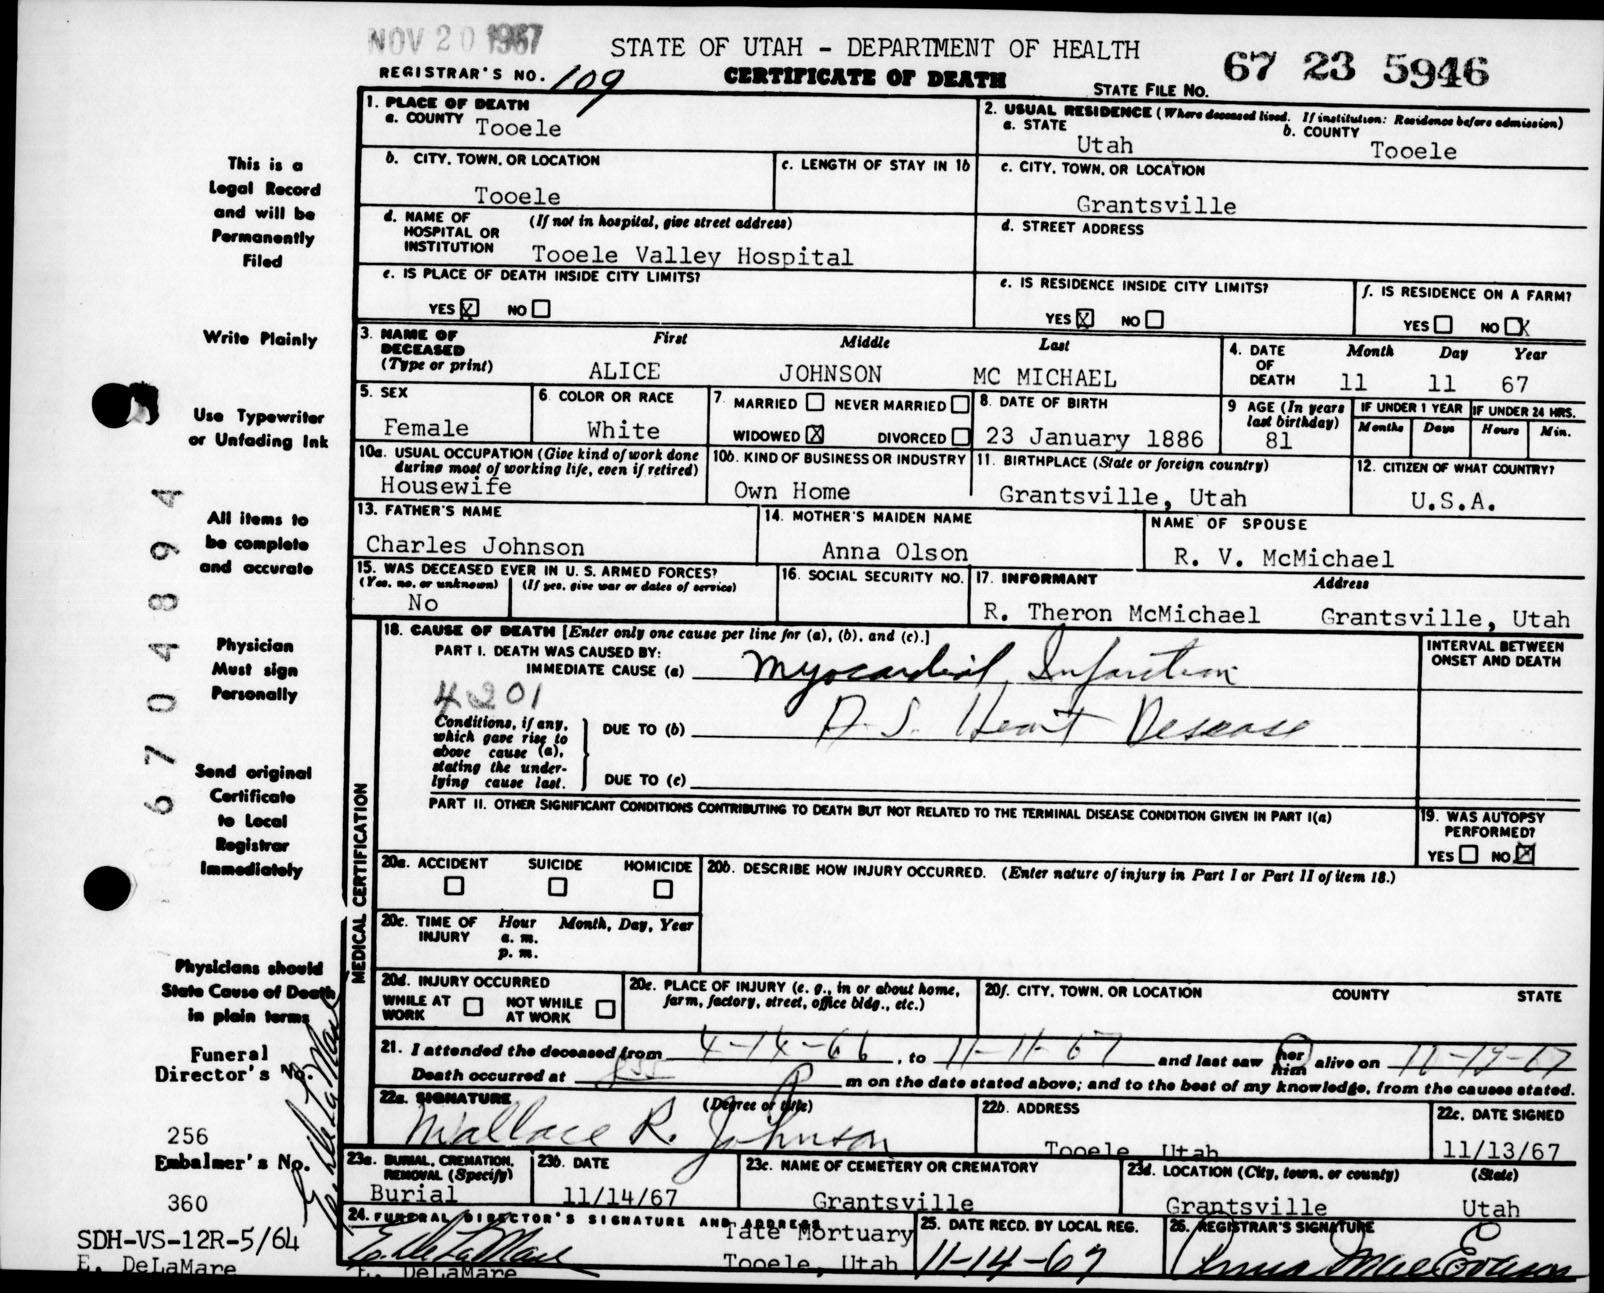 NOV 20 1967
STATE OF UTAH - DEPARTMENT OF HEALTH
67 23 5946
REGISTRAR'S NO. 109
CERTIFICATE OF DEATH
STATE FILE NO.
1. PLACE OF DEATH
a. COUNTY Tooele
2. USUAL RESIDENCE (Where deceased lived. If institution: Residence before admission)
a. STATE Utah
b. COUNTY Tooele
b. CITY, TOWN, OR LOCATION
Tooele
c. LENGTH OF STAY IN 1b
c. CITY, TOWN, OR LOCATION
Grantsville
d. NAME OF HOSPITAL OR INSTITUTION (If not in hospital, give street address)
Tooele Valley Hospital
d. STREET ADDRESS
e. IS PLACE OF DEATH INSIDE CITY LIMITS?
YES X NO
e. IS RESIDENCE INSIDE CITY LIMITS?
YES X NO
f. IS RESIDENCE ON A FARM?
YES NO X
3. NAME OF DECEASED (Type or print)
First Middle Last
ALICE JOHNSON MC MICHAEL
4. DATE OF DEATH
Month Day Year
11 11 67
5. SEX
Female
6. COLOR OR RACE
White
7. MARRIED NEVER MARRIED
WIDOWED X DIVORCED
8. DATE OF BIRTH
23 January 1886
9 AGE (In years last birthday)
81
IF UNDER 1 YEAR
Months Days
IF UNDER 24 HRS.
Hours Min.
10a. USUAL OCCUPATION (Give kind of work done during most of working life, even if retired)
Housewife
10b. KIND OF BUSINESS OR INDUSTRY
Own Home
11. BIRTHPLACE (State or foreign country)
Grantsville, Utah
12. CITIZEN OF WHAT COUNTRY?
U.S.A.
13. FATHER'S NAME
Charles Johnson
14. MOTHER'S MAIDEN NAME
Anna Olson
NAME OF SPOUSE
R. V. McMichael
15. WAS DECEASED EVER IN U. S. ARMED FORCES?
(Yes, no, or unknown) (If yes, give war or dates of service)
No
16. SOCIAL SECURITY NO.
17. INFORMANT Address
R. Theron McMichael Grantsville, Utah
MEDICAL CERTIFICATION
18. CAUSE OF DEATH [Enter only one cause per line for (a), (b), and (c).]
PART I. DEATH WAS CAUSED BY:
IMMEDIATE CAUSE (a) Myocardial Infarction
INTERVAL BETWEEN ONSET AND DEATH
4201
Conditions, if any, which gave rise to above cause (a), stating the underlying cause last.
DUE TO (b) A. S. Heart Disease
DUE TO (c)
PART II. OTHER SIGNIFICANT CONDITIONS CONTRIBUTING TO DEATH BUT NOT RELATED TO THE TERMINAL DISEASE CONDITION GIVEN IN PART I(a)
19. WAS AUTOPSY PERFORMED?
YES NO X
20a. ACCIDENT SUICIDE HOMICIDE
20b. DESCRIBE HOW INJURY OCCURRED. (Enter nature of injury in Part I or Part II of item 18.)
20c. TIME OF INJURY Hour Month, Day, Year
a. m.
p. m.
20d. INJURY OCCURRED
WHILE AT WORK NOT WHILE AT WORK
20e. PLACE OF INJURY (e. g., in or about home, farm, factory, street, office bldg., etc.)
20f. CITY, TOWN, OR LOCATION COUNTY STATE
21. I attended the deceased from 4-14-66, to 11-11-67 and last saw her him alive on
Death occurred at P m on the date stated above; and to the best of my knowledge, from the causes stated.
22a. SIGNATURE (Degree or title)
Wallace R. Johnson
22b. ADDRESS
Tooele Utah
22c. DATE SIGNED
11/13/67
23a. BURIAL, CREMATION, REMOVAL (Specify)
Burial
23b. DATE
11/14/67
23c. NAME OF CEMETERY OR CREMATORY
Grantsville
23d. LOCATION (City, town, or county) (State)
Grantsville Utah
24. FUNERAL DIRECTOR'S SIGNATURE AND ADDRESS
E. DeLaMare
E. DeLaMare
Tate Mortuary
Tooele, Utah
25. DATE RECD. BY LOCAL REG.
11-14-67
26. REGISTRAR'S SIGNATURE
This is a
Legal Record
and will be
Permanently
Filed
Write Plainly
Use Typewriter
or Unfading Ink
All items to
be complete
and accurate
Physician
Must sign
Personally
Send original
Certificate
to Local
Registrar
Immediately
Physicians should
State Cause of Death
in plain terms
Funeral
Director's No.
256
Embalmer's No.
360
E. DeLaMare
SDH-VS-12R-5/64
E. DeLaMare
67 04894